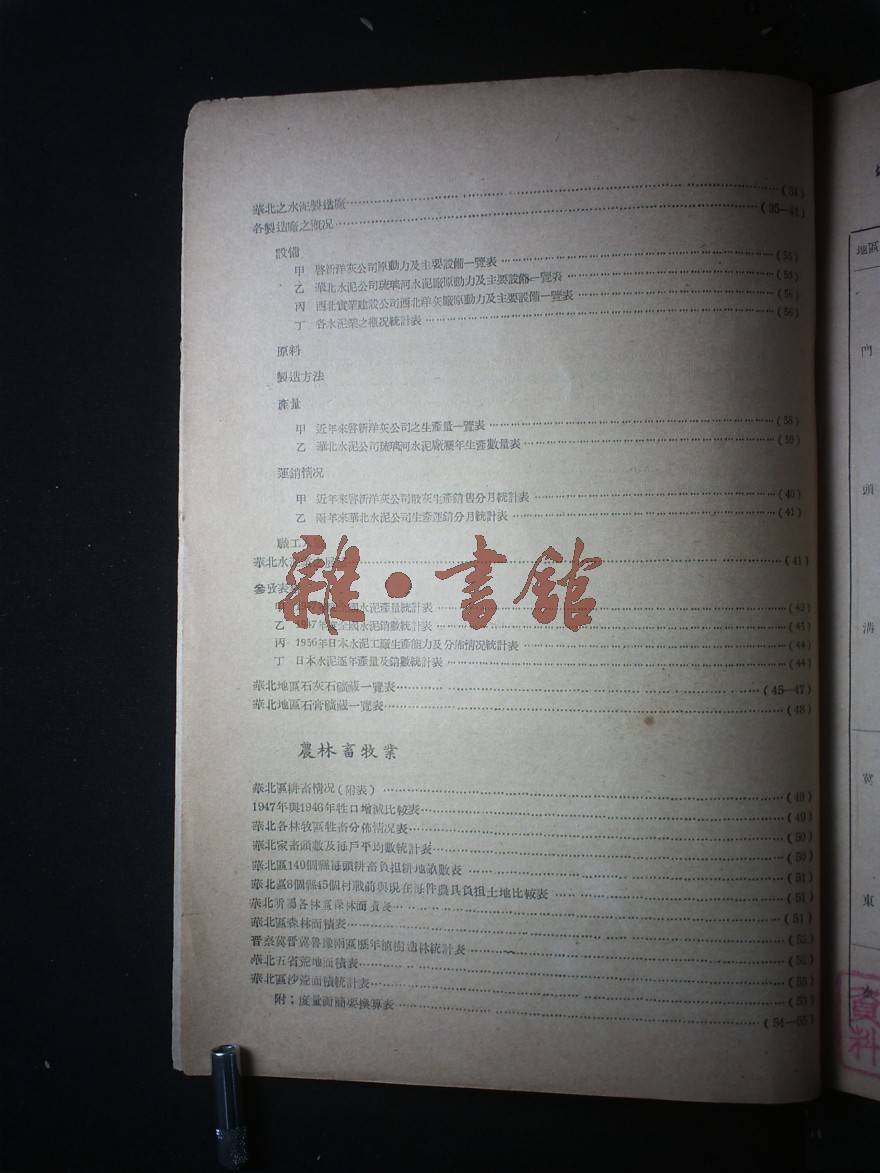 華北之水泥製造廠……(34)
各製造廠之概況……(35—41)
設備
甲 啓新洋灰公司原動力及主要設備一覽表……(35)
乙 華北水泥公司琉璃河水泥廠原動力及主要設備一覽表……(35)
丙 西北實業建設公司西北洋灰廠原動力及主要設備一覽表……(36)
丁 各水泥業之概況統計表……(36)
原料
製造方法
產量
甲 近年來啓新洋灰公司之生產量一覽表……(38)
乙 華北水泥公司琉璃河水泥廠歷年生產數量表……(39)
運銷情況
甲 近年來啓新洋灰公司散灰生產銷售分月統計表……(40)
乙 兩年來華北水泥公司生產運銷分月統計表……(41)
職工
華北水泥……(41)
參攷表
甲 全國水泥產量統計表……(42)
乙 1947年度全國水泥銷數統計表……(43)
丙 1936年日本水泥工廠生產能力及分佈情況統計表……(44)
丁 日本水泥逐年產量及銷數統計表……(44)
華北地區石灰石礦藏一覽表……(45—47)
華北地區石膏礦藏一覽表……(48)
農林畜牧業
華北區耕畜情況(附表)……(49)
1947年與1946年牲口增減比較表……(49)
華北各林牧區牲畜分佈情況表……(50)
華北家畜頭數及每戶平均數統計表……(50)
華北區140個縣每頭耕畜負担耕地畝數表……(51)
華北區8個縣45個村戰前與現在每件農具負担土地比較表……(51)
華北所屬各林區保林面積表……(51)
華北區森林面積表……(52)
晉察冀晉冀魯豫兩區歷年植樹造林統計表……(52)
華北五省荒地面積表……(53)
華北區沙荒面積統計表……(53)
附：度量衡簡要換算表……(54—55)
雜·書館
地區
門
頭
溝
東
資料